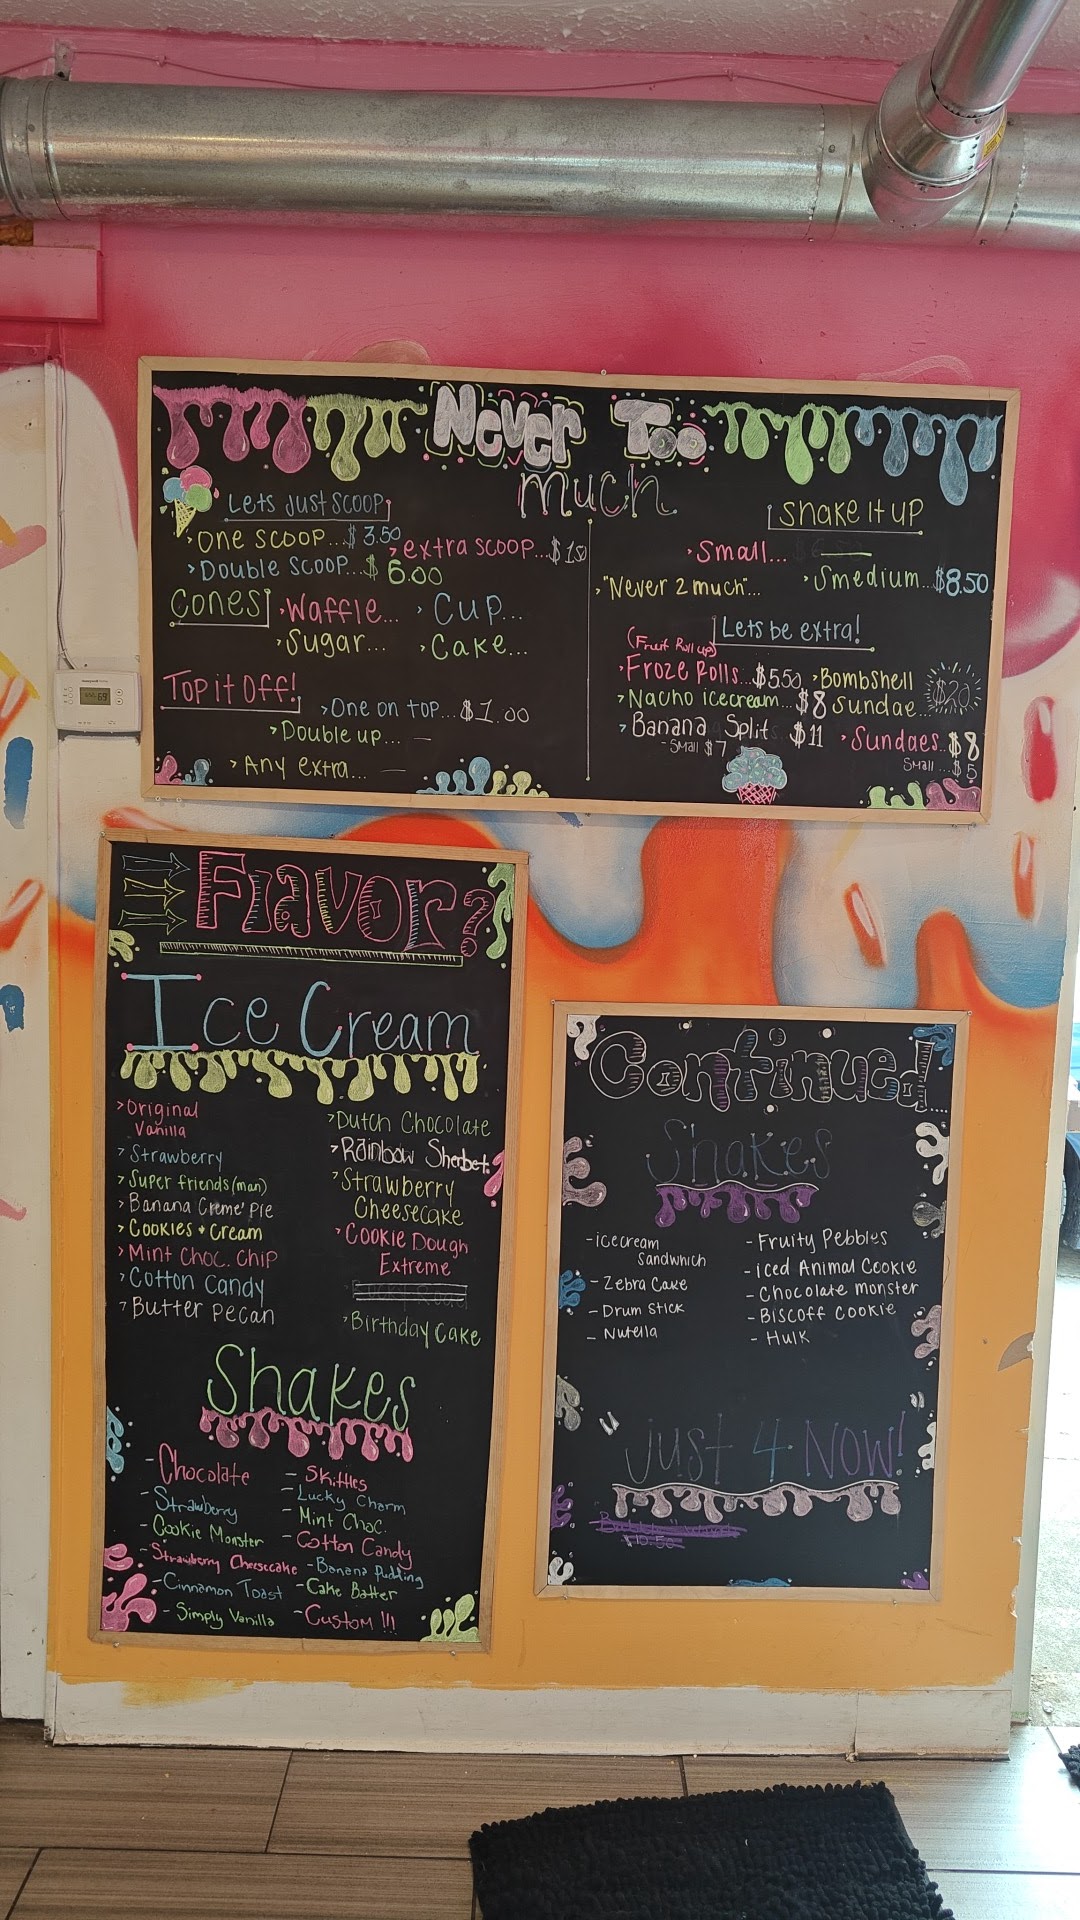 Never Too
much
Lets Just SCOOP
>One scoop...$3.50
>extra scoop...$1.50
>Double scoop...$6.00
Cones
>Waffle...
>Cup...
>Sugar...
>Cake...
Top it Off!
>One on top...$1.00
>Double up... —
>Any extra... —
Shake It UP
>Small...
>"Never 2 much"...
>Smedium...$8.50
Lets be extra!
(Fruit Roll up)
>Froze Rolls...$5.50
>Bombshell
Sundae...
$20
>Nacho icecream...$8
>Banana Split $11
-Small $7
>Sundaes..$8
Small ...$5
Flavor?
Ice Cream
>Original
Vanilla
>Strawberry
>Super friends(man)
>Banana Creme' pie
>Cookies + Cream
>Mint Choc. Chip
>Cotton Candy
>Butter pecan
>Dutch Chocolate
>Rainbow Sherbet
>Strawberry
Cheesecake
>Cookie Dough
Extreme
>Birthday Cake
Shakes
-Chocolate
-Strawberry
-Cookie Monster
-Strawberry Cheesecake
-Cinnamon Toast
-Simply Vanilla
-Skittles
-Lucky Charm
-Mint Choc.
-Cotton Candy
-Banana Pudding
-Cake Batter
-Custom !!!
Continued....
Shakes
-icecream
Sandwhich
-Zebra Cake
-Drum Stick
-Nutella
-Fruity Pebbles
-iced Animal Cookie
-Chocolate monster
-Biscoff Cookie
-Hulk
"Just 4 NOW!